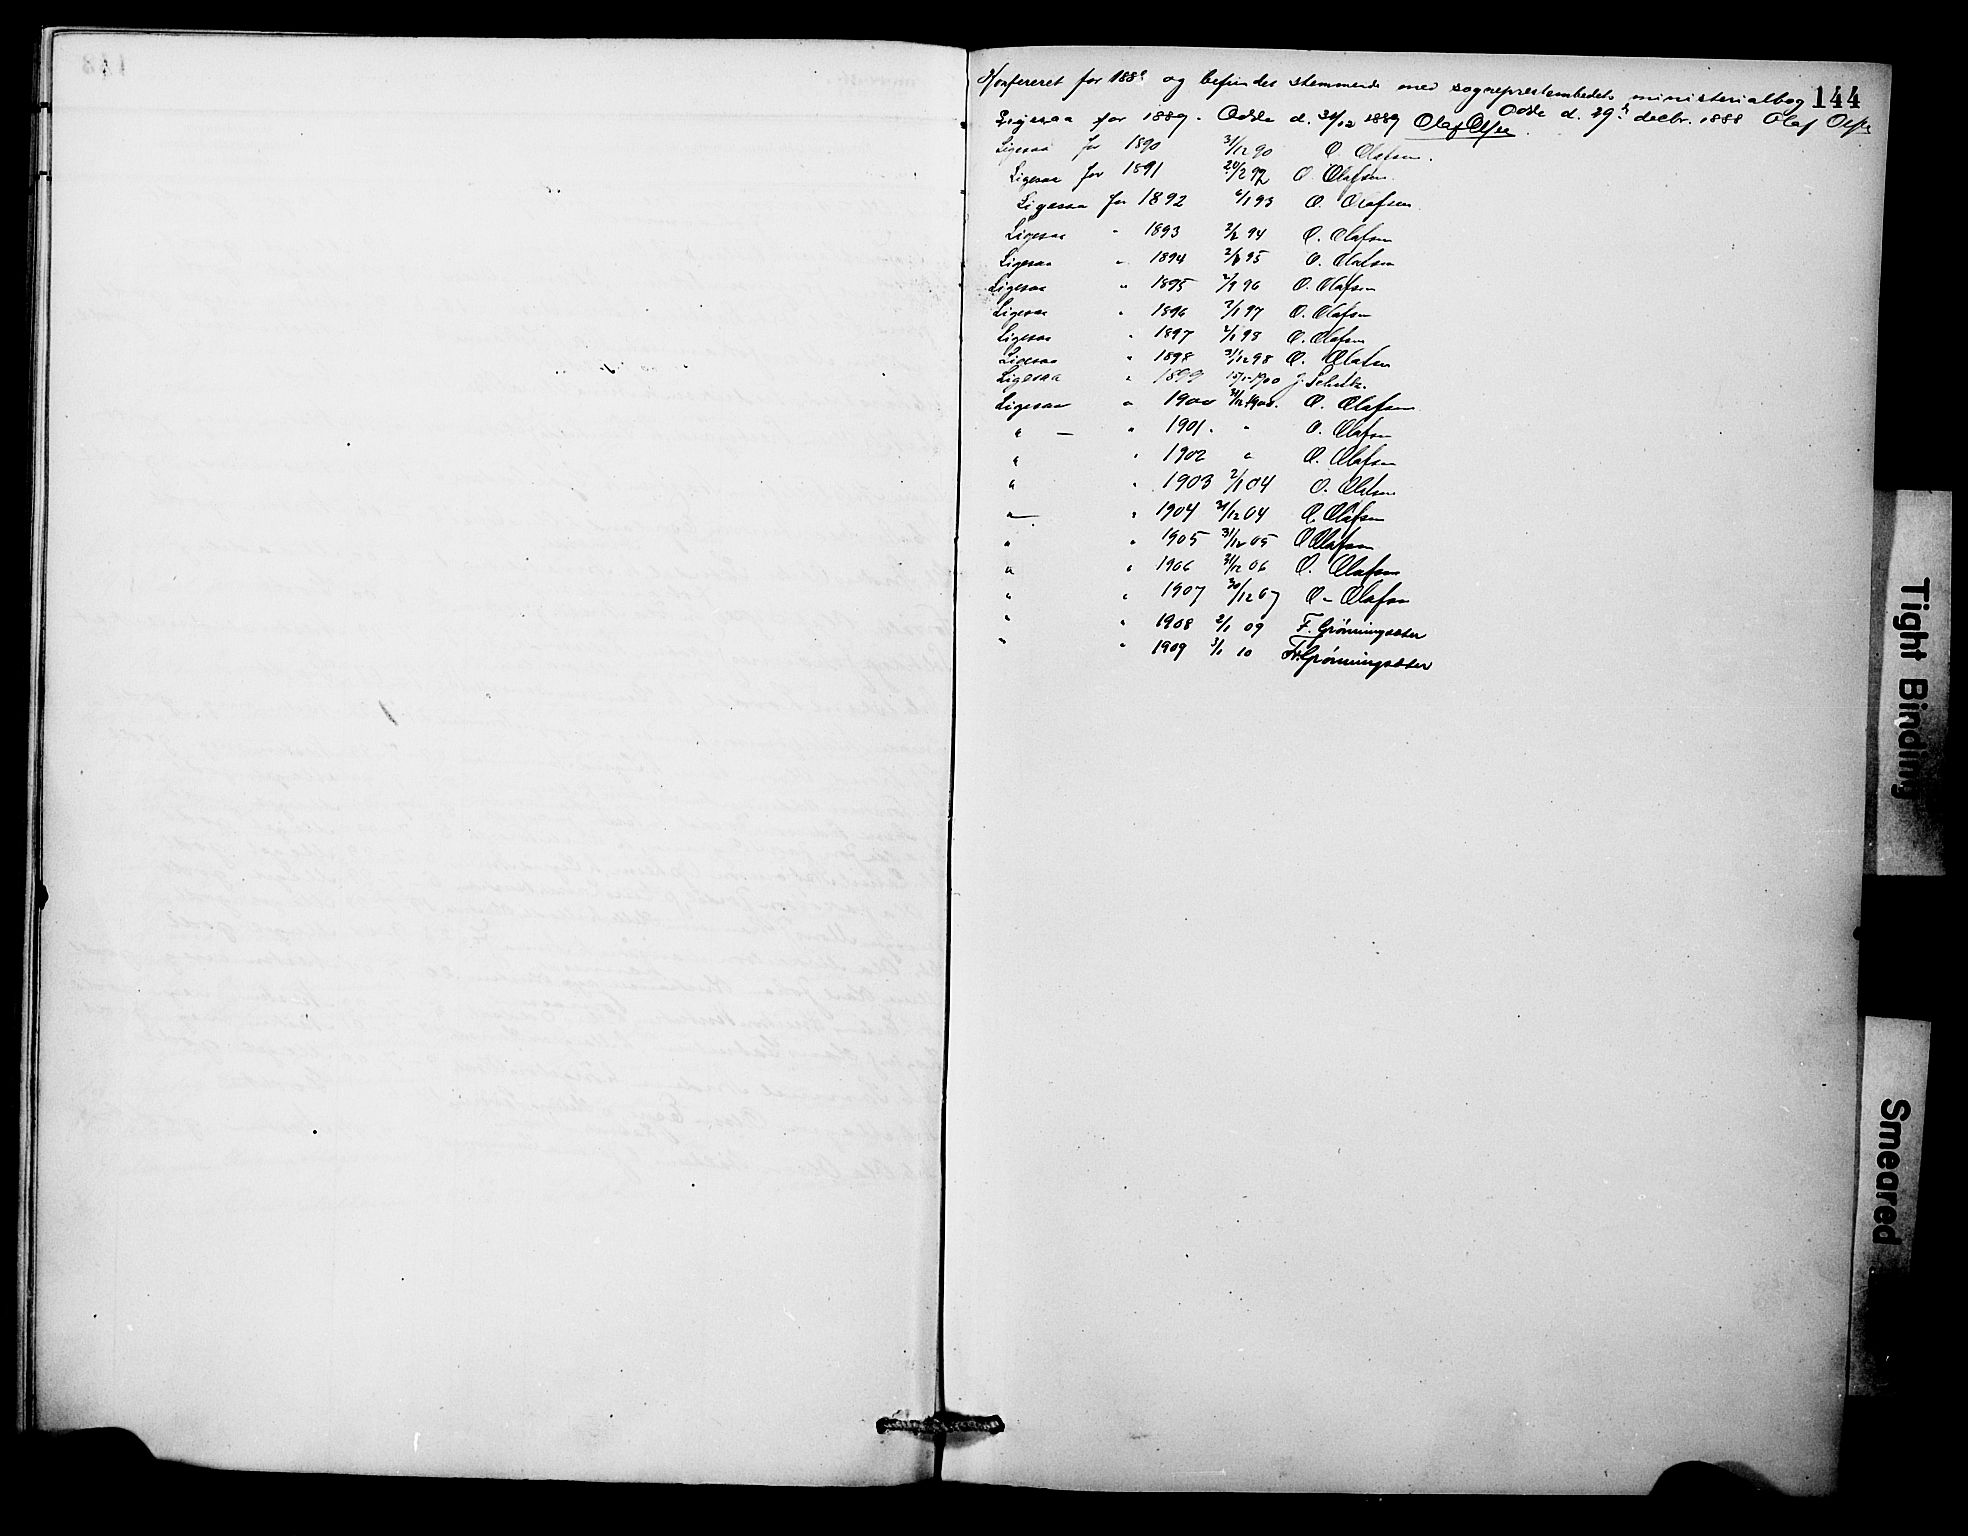 144
Konfereret for 1888 og befindes stemmende med sogneprestembedets ministerialbog
Odde d. 29de decbr. 1888 Olaf Olsen
Ligesaa for 1889. Odde d. 31/12 1889 Olaf Olsen.
Ligesaa for 1890 31/12 90 O. Olafsen.
Ligesaa for 1891 O. Olafsen.
Ligesaa for 1892 6/1 93 O. Olafsen.
Ligesaa " 1893 94 O. Olafsen
Ligesaa " 1894 95 O. Olafsen
Ligesaa " 1895 96 O. Olafsen
Ligesaa " 1896 2/1 97 O. Olafsen
Ligesaa " 1897 98 O. Olafsen
Ligesaa " 1898 31/12 98 O. Olafsen
Ligesaa " 1899 1900 J. Schultz.
Ligesaa " 1900 31/12 1900. O. Olafsen
" — " 1901. " O. Olafsen
" " 1902 " O. Olafsen
" " 1903 2/1 04 O. Olafsen
" " 1904 31/12 04 O. Olafsen
" " 1905 31/12 05 O Olafsen
" " 1906 31/12 06 O. Olafsen
" " 1907 30/12 07 O. Olafsen
" " 1908 2/1 09 F. Grönningsæter
" " 1909 3/1 10 Fr. Grönningsæter
Tight Binding
Smeared